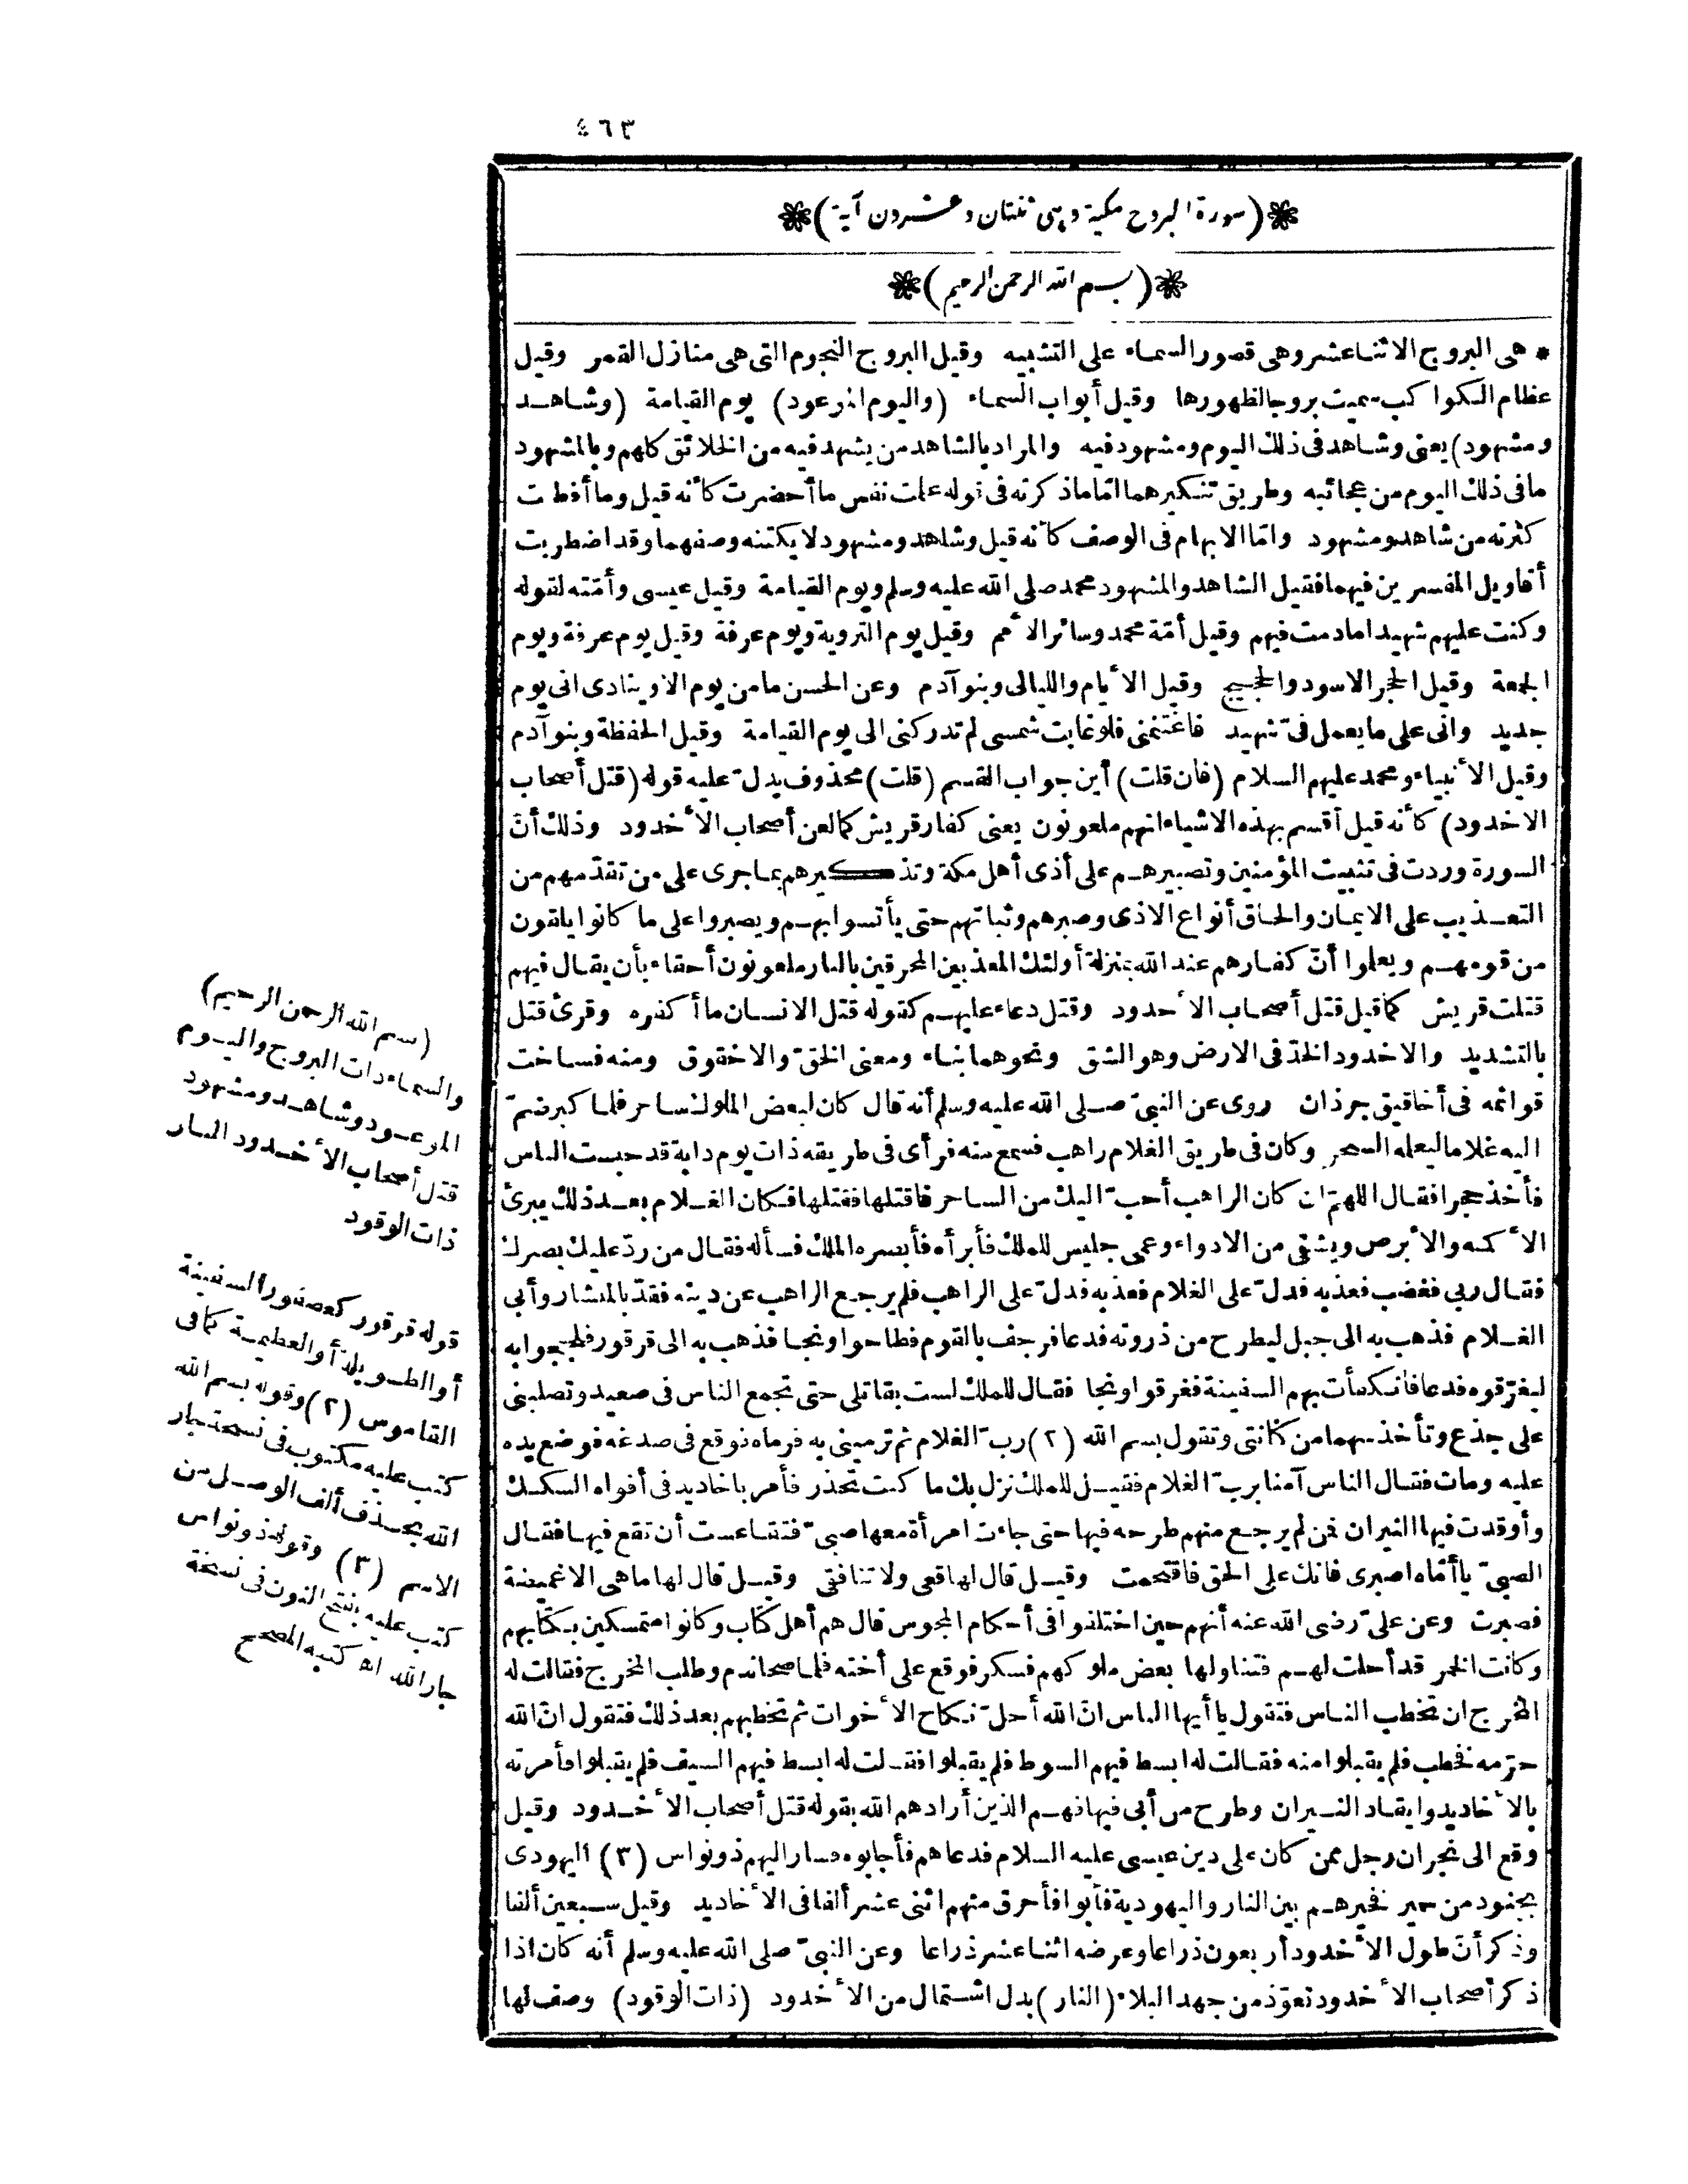 ٤٦٣
(سورة البروج مكية وهى ثنتان وعشرون آية)
(بسم الله الرحمن الرحيم)
* هى البروج الاثنا عشر وهى قصور السماء على التشبيه وقيل البروج النجوم التى هى منازل القمر وقيل
عظام الكواكب سميت بروجا لظهورها وقيل أبواب السماء (واليوم الموعود) يوم القيامة (وشاهد
ومشهود) يعنى وشاهد فى ذلك اليوم ومشهود فيه والمراد بالشاهد من يشهد فيه من الخلائق كلهم وبالمشهود
ما فى ذلك اليوم من عجائبه وطريق تنكيرهما امّا ما ذكرته فى قوله علمت نفس ما أحضرت كأنه قيل وما أفرطت
كثرته من شاهد ومشهود وامّا الابهام فى الوصف كأنه قيل وشاهد ومشهود لا يكتنه وصفهما وقد اضطربت
أقاويل المفسرين فيهما فقيل الشاهد والمشهود محمد صلى الله عليه وسلم ويوم القيامة وقيل عيسى وأمّته لقوله
وكنت عليهم شهيدا ما دمت فيهم وقيل أمّة محمد وسائر الأمم وقيل يوم التروية ويوم عرفة وقيل يوم عرفة ويوم
الجمعة وقيل الحجر الاسود والحجيج وقيل الأيام والليالى وبنو آدم وعن الحسن ما من يوم الا وينادى انى يوم
جديد وانى على ما يعمل فىّ شهيد فاغتنمنى فلو غابت شمسى لم تدركنى الى يوم القيامة وقيل الحفظة وبنو آدم
وقيل الأنبياء ومحمد عليهم السلام (فان قلت) أين جواب القسم (قلت) محذوف يدلّ عليه قوله (قتل أصحاب
الاخدود) كأنه قيل أقسم بهذه الاشياء انهم ملعونون يعنى كفار قريش كما لعن أصحاب الأخدود وذلك أنّ
السورة وردت فى تثبيت المؤمنين وتصبيرهم على أذى أهل مكة وتذكيرهم بما جرى على من تقدّمهم من
التعذيب على الايمان والحاق أنواع الاذى وصبرهم وثباتهم حتى يأتسوا بهم ويصبروا على ما كانوا يلقون
من قومهم ويعلموا أنّ كفارهم عند الله بمنزلة أولئك المعذبين المحرقين بالنار ملعونون أحقاء بأن يقال فيهم
قتلت قريش كما قيل قتل أصحاب الأخدود وقتل دعاء عليهم كقوله قتل الانسان ما أكفره وقرئ قتل
بالتشديد والاخدود الخدّ فى الارض وهو الشق ونحوهما بناء ومعنى الخقّ والاخقوق ومنه فساخت
قوائمه فى أخاقيق جرذان روى عن النبىّ صلى الله عليه وسلم أنه قال كان لبعض الملوك ساحر فلما كبر ضمّ
اليه غلاما ليعلمه السحر وكان فى طريق الغلام راهب فسمع منه فرأى فى طريقه ذات يوم دابة قد حبست الناس
فأخذ حجرا فقال اللهمّ ان كان الراهب أحبّ اليك من الساحر فاقتلها فقتلها فكان الغلام بعد ذلك يبرئ
الأكمه والأبرص ويشفى من الادواء وعمى جليس للملك فأبرأه فأبصره الملك فسأله فقال من ردّ عليك بصرك
فقال ربى فغضب فعذبه فدلّ على الغلام فعذبه فدلّ على الراهب فلم يرجع الراهب عن دينه فقدّ بالمنشار وأبى
الغلام فذهب به الى جبل ليطرح من ذروته فدعا فرجف بالقوم فطاحوا ونجا فذهب به الى قرقور فلججوا به
ليغرّقوه فدعا فانكفأت بهم السفينة فغرقوا ونجا فقال للملك لست بقاتلى حتى تجمع الناس فى صعيد وتصلبنى
على جذع وتأخذ سهما من كنانتى وتقول بسم الله (٢) ربّ الغلام ثم ترمينى به فرماه فوقع فى صدغه فوضع يده
عليه ومات فقال الناس آمنا بربّ الغلام فقيل للملك نزل بك ما كنت تحذر فأمر بأخاديد فى أفواه السكك
وأوقدت فيها النيران فمن لم يرجع منهم طرحه فيها حتى جاءت امرأة معها صبىّ فتقاعست أن تقع فيها فقال
الصبىّ يا أمّاه اصبرى فانك على الحق فاقتحمت وقيل قال لها قعى ولا تنافقى وقيل قال لها ما هى الا غميضة
فصبرت وعن علىّ رضى الله عنه أنهم حين اختلفوا فى أحكام المجوس قال هم أهل كتاب وكانوا متمسكين بكتابهم
وكانت الخمر قد أحلت لهم فتناولها بعض ملوكهم فسكر فوقع على أخته فلما صحا ندم وطلب المخرج فقالت له
المخرج ان تخطب الناس فتقول يا أيها الناس انّ الله أحلّ نكاح الأخوات ثم تخطبهم بعد ذلك فتقول انّ الله
حرّمه فخطب فلم يقبلوا منه فقالت له ابسط فيهم السوط فلم يقبلوا فقالت له ابسط فيهم السيف فلم يقبلوا فأمرته
بالأخاديد وايقاد النيران وطرح من أبى فيها فهم الذين أرادهم الله بقوله قتل أصحاب الأخدود وقيل
وقع الى نجران رجل ممن كان على دين عيسى عليه السلام فدعاهم فأجابوه فسار اليهم ذو نواس (٣) اليهودى
بجنود من حمير فخيرهم بين النار واليهودية فأبوا فأحرق منهم اثنى عشر ألفا فى الأخاديد وقيل سبعين ألفا
وذكر أنّ طول الأخدود أربعون ذراعا وعرضه اثنا عشر ذراعا وعن النبىّ صلى الله عليه وسلم أنه كان اذا
ذكر أصحاب الأخدود تعوّذ من جهد البلاء (النار) بدل اشتمال من الأخدود (ذات الوقود) وصف لها
(بسم الله الرحمن الرحيم)
والسماء ذات البروج واليوم
الموعود وشاهد ومشهود
قتل أصحاب الأخدود النار
ذات الوقود
قوله قرقور كعصفور السفينة
أو الطويلة أو العظيمة كما فى
القاموس (٢) وقوله بسم الله
كتب عليه مكتوب فى نسخة جار
الله بحذف ألف الوصل من
الاسم (٣) وقوله ذو نواس
كتب عليه بفتح النون فى نسخة
جار الله اه كتبه المصحح